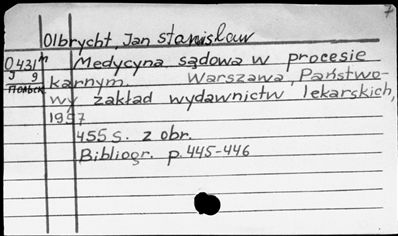 7
Olbrycht, Jan Stanisław
0431m Medycyna sądowa w procesie
J 9 karnym. Warszawa, Państwo-
польск wy zakład wydawnictw lekarskich,
1957
455 s. z obr.
Bibliogr. p. 445-446